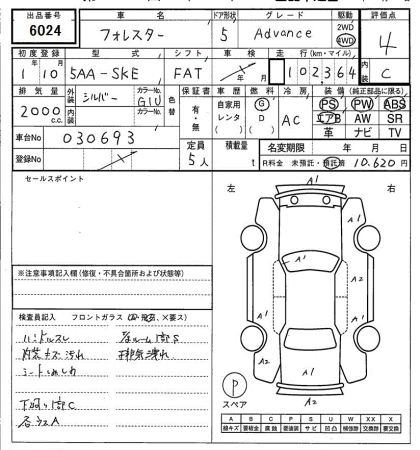 出品番号 車名 ドア形状 グレード 駆動 評価点
6024 フォレスター 5 Advance 2WD 4WD 4
初度登録 型式 シフト 車検 走行(km・マイル) 内装
1 10 5AA-SKE FAT 102364 C
排気量 外装 シルバー カラーNo G1U 色替 保証書 車歴 燃料 冷房 装備(純正部品に限る)
2000 c.c. 内装 カラーNo 有・無 自家用 レンタ G D AC PS PW ABS
エアB AW SR
革 ナビ TV
車台No 030693 定員 5人 積載量 t 名変期限 年 月 日
登録No R料金 未預託・預託済 10.620円
セールスポイント
左 右
A1
A1 A1
A1
A1
A2
A1
A2 A2
A1
※注意事項記入欄(修復・不具合箇所および状態等)
検査員記入 フロントガラス
ハンドルスレ
内装キズ汚れ
下廻り部C
各ウスA
P
スペア
A B C P S U W X XX
線キズ 要板金 腐蝕 要塗装 サビ 凹凸 補修跡 交換跡